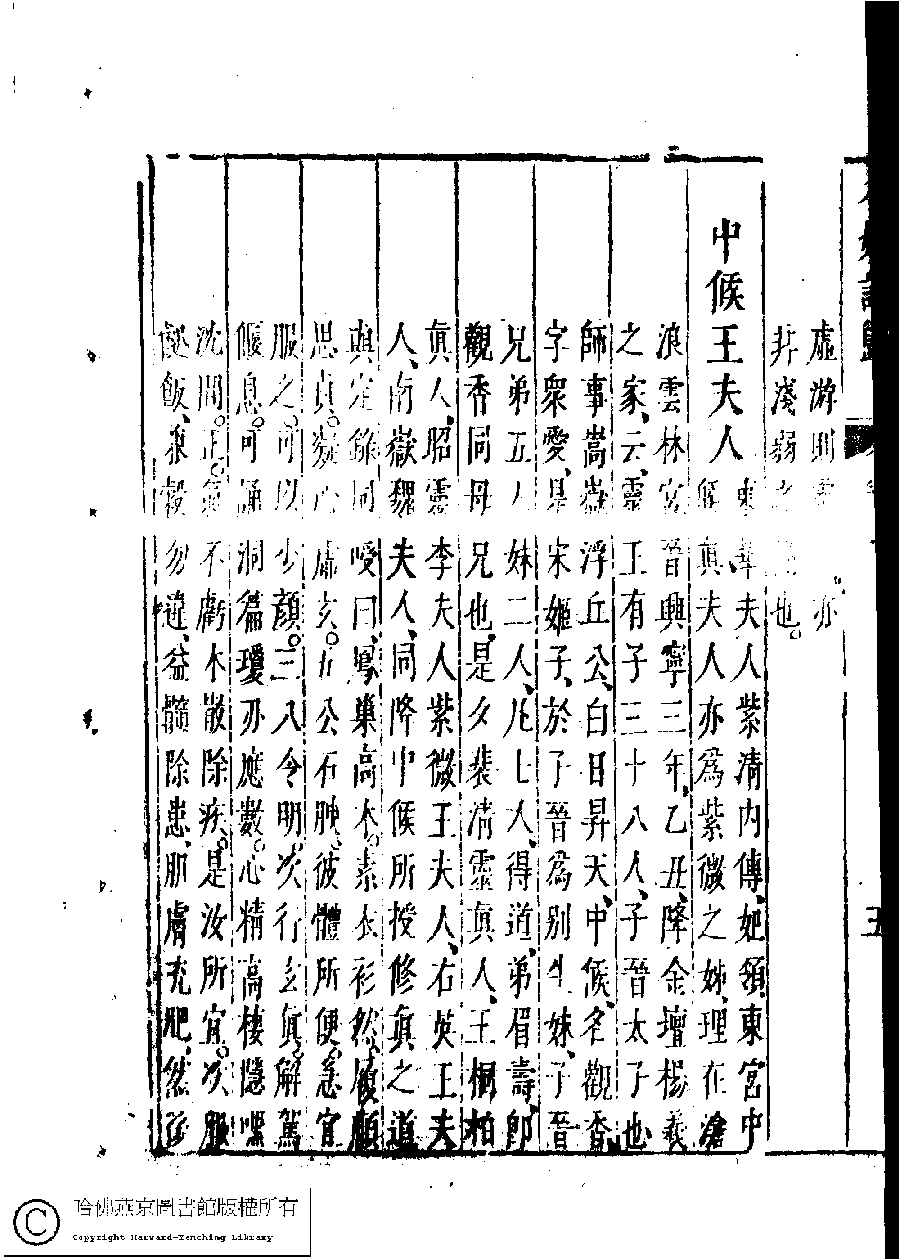 虛游則亦
非淺弱之也。
中候王夫人
東華夫人紫清內傳、妃領東宮中
候真夫人亦為紫微之姊、理在滄
浪雲林宮晉興寧三年、乙丑、降金壇楊羲
之家、云、靈王有子三十八人、子晉太子也
師事嵩嶽浮丘公、白日昇天、中候、名觀香、
字眾愛、是宋姬子、於子晉為別生妹、子晉
兄弟五人妹二人、凡七人、得道、弟眉壽、卽
觀香同母兄也、是夕裴清靈真人、王桐柏
真人、昭靈李夫人紫微王夫人、右英王夫
人、南嶽魏夫人、同降中候所授修真之道
與定錄同曰、鳳巢高木。素衣衫然。履顧
思真。凝心虛玄。五公石腴。彼體所便。急宜
服之。可以少顏。三八令明。次行玄真。解駕
偃息。可誦洞篇瓊刃應數。心精高棲隱嘿
沈閒。正氣不虧术散除疾。是汝所宜。次服
飯、兼穀勿違、益髓除患、肌膚充肥、然後